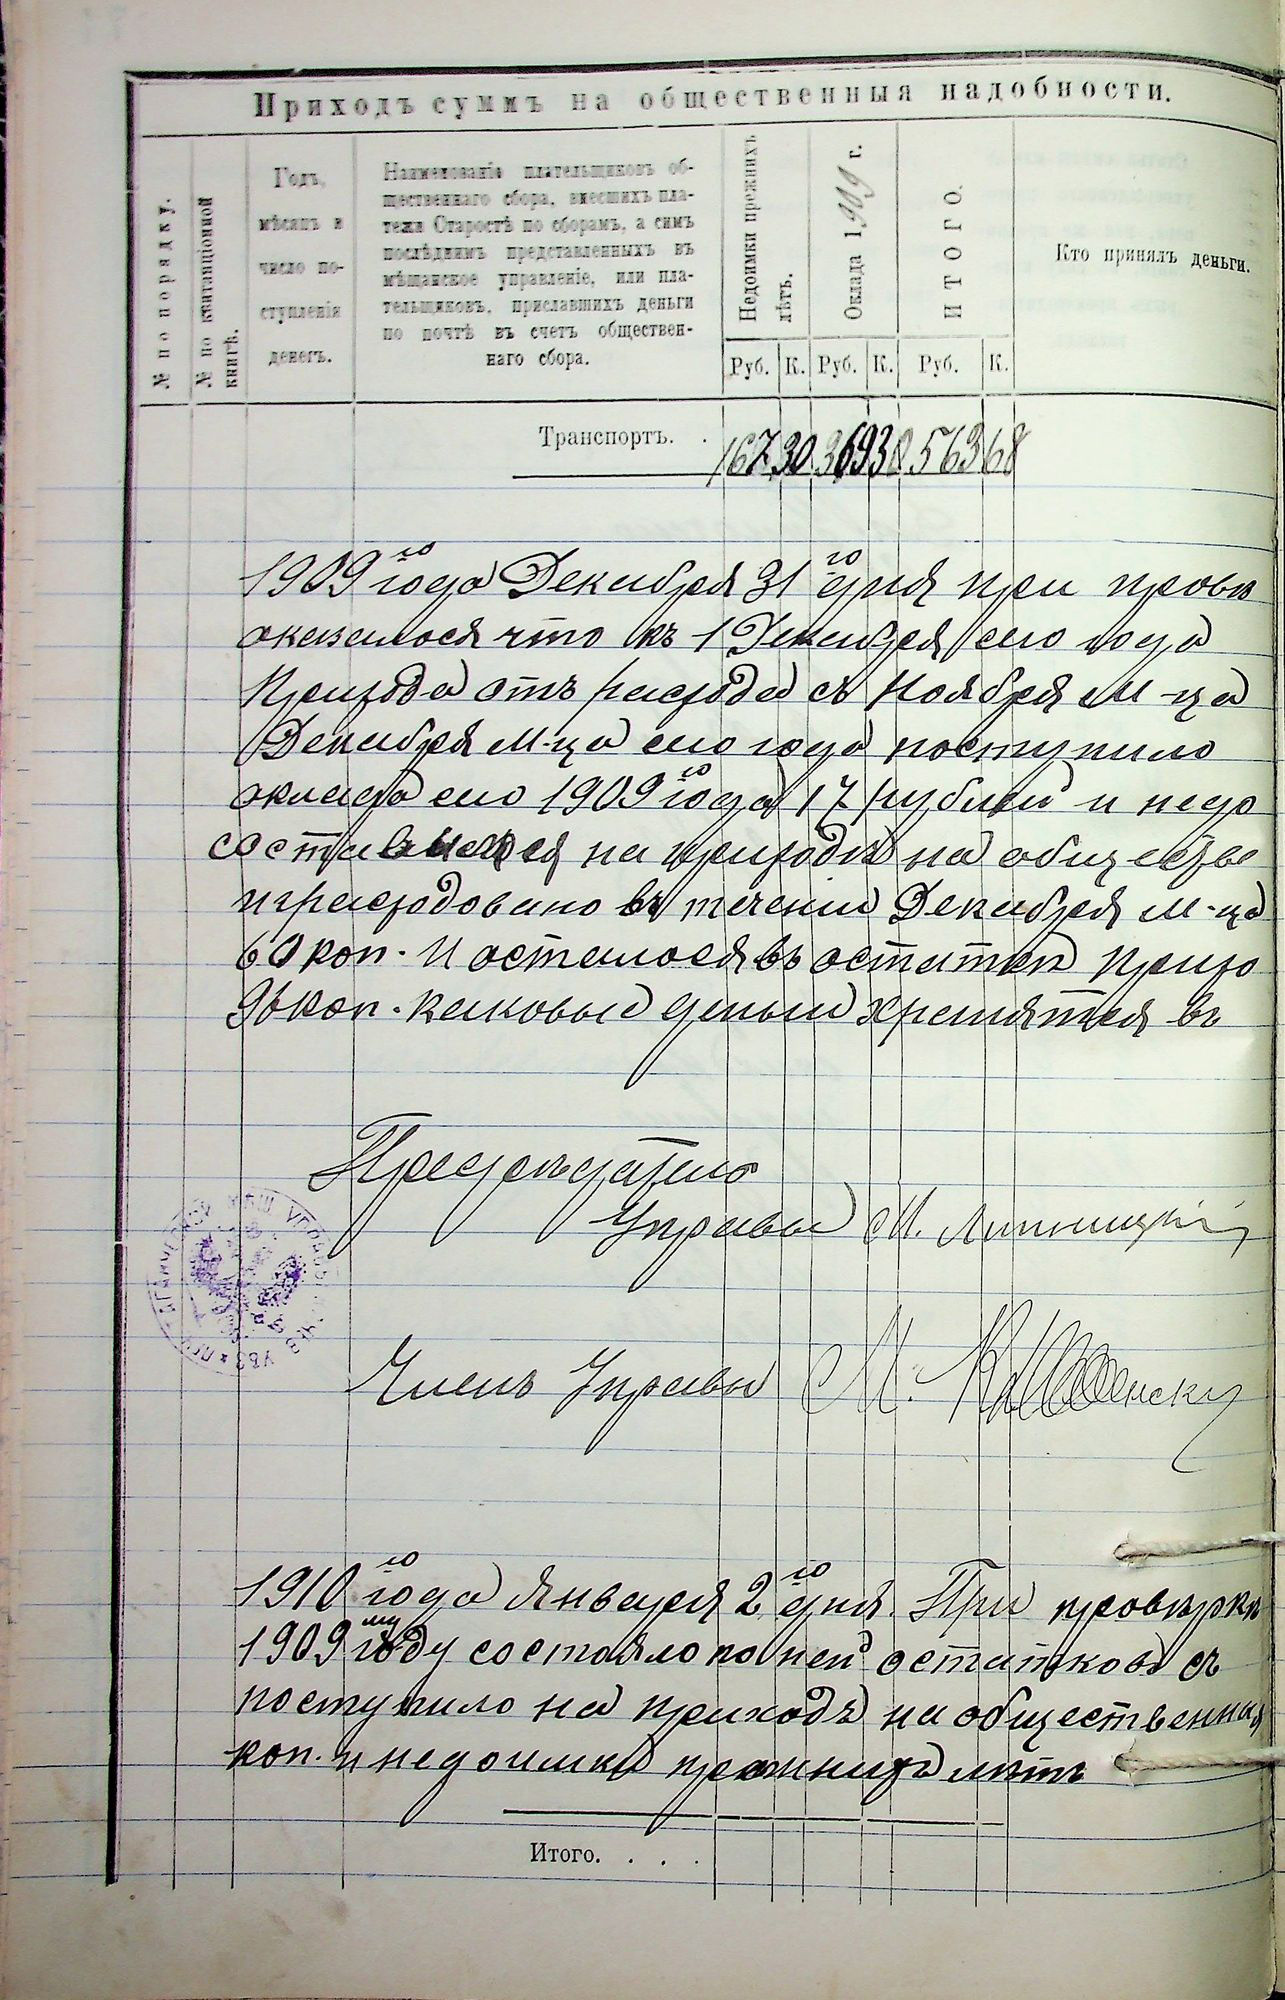 Приходъ суммъ на общественныя надобности.
№ по порядку.
№ по квитанціонной книгѣ.
Годъ,
мѣсяцъ и
число по-
ступленія
денегъ.
Наименованіе плательщиковъ об-
щественнаго сбора, внесшихъ пла-
тежи Старостѣ по сборамъ, а симъ
послѣднимъ представленныхъ въ
мѣщанское управленіе, или пла-
тельщиковъ, приславшихъ деньги
по почтѣ въ счетъ обществен-
наго сбора.
Недоимки прежнихъ лѣтъ.
Оклада 1909 г.
ИТОГО.
Кто принялъ деньги.
Руб. К. Руб. К. Руб. К.
Транспортъ. . 167 30 369 38 563 68
1909го года Декабря 31го дня при провѣ
оказалося что къ 1 Декабря сего года
Прихода отъ расхода съ Ноября М-ца
Декабря М-ца сего года поступило
оклада сего 1909го года 17 рублей и недо
составился на приходъ на обществе
израсходовано въ теченіи Декабря М-ца
60 коп. И осталося въ остатки прихо
96 коп. каковые деньги хранятся въ
Предсѣдатель
Управы М. Липницкій
Членъ Управы М.
1910го года Января 2го дня. При провѣркѣ
1909му году состояло по ней остатковъ съ
поступило на приходъ на общественныя
коп. и недоимки прежнихъ лѣтъ
Итого. . . .